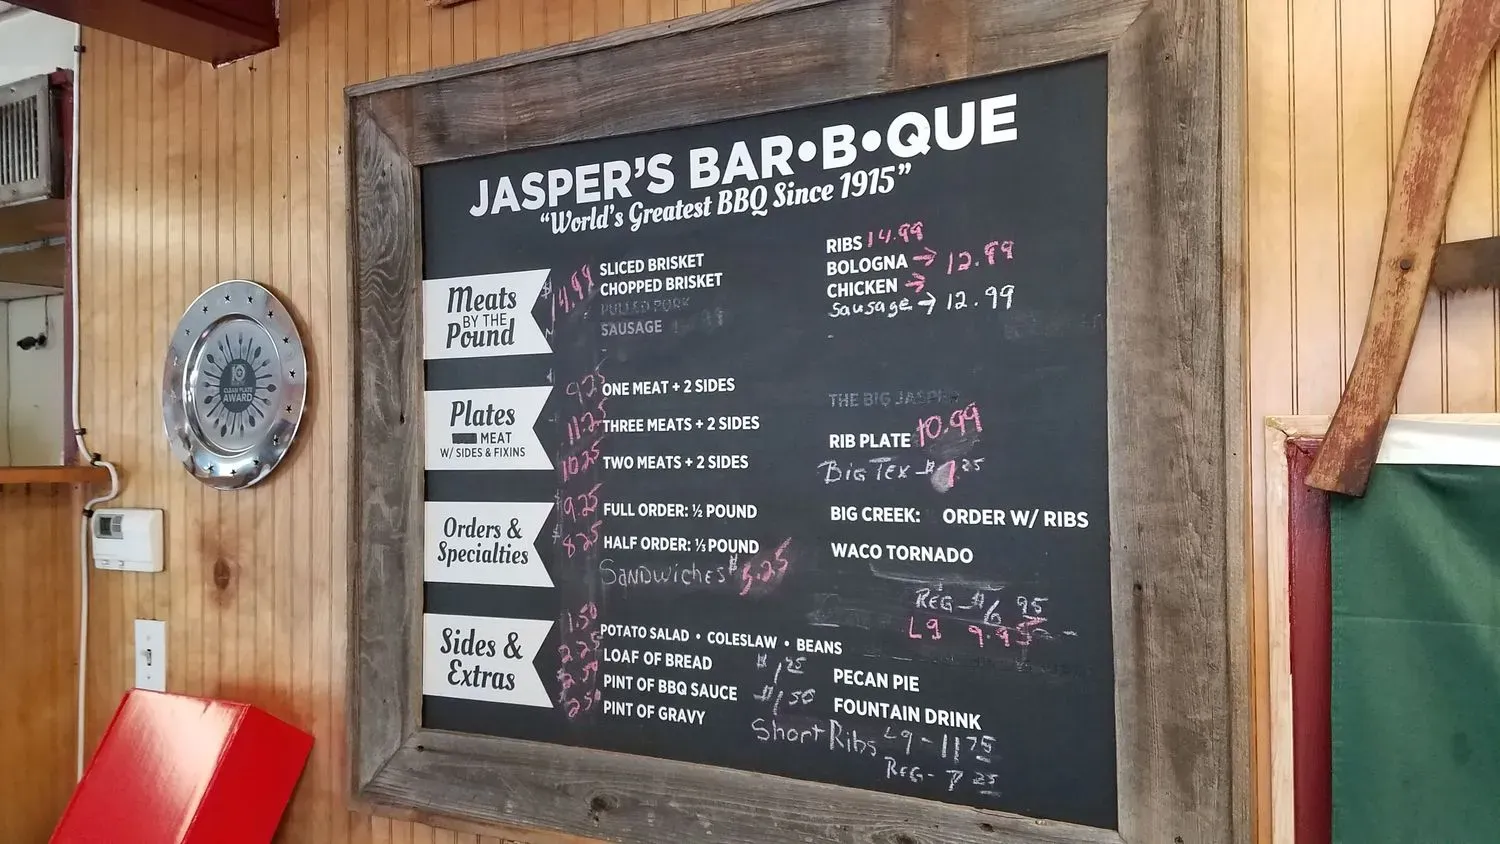 JASPER'S BAR•B•QUE
"World's Greatest BBQ Since 1915"
Meats
BY THE
Pound
$14.99
SLICED BRISKET
CHOPPED BRISKET
PULLED PORK
SAUSAGE
RIBS 14.99
BOLOGNA → 12.99
CHICKEN →
Sausage → 12.99
Plates
MEAT
W/ SIDES & FIXINS
9.25 ONE MEAT + 2 SIDES
11.25 THREE MEATS + 2 SIDES
10.25 TWO MEATS + 2 SIDES
THE BIG JASPER
RIB PLATE 10.99
BIG TEX - $7.25
Orders &
Specialties
9.25 FULL ORDER: ½ POUND
8.25 HALF ORDER: ⅓ POUND
SANDWICHES $5.25
BIG CREEK: ORDER W/ RIBS
WACO TORNADO
REG - $6.95
L9 9.95
Sides &
Extras
1.50 POTATO SALAD • COLESLAW • BEANS
2.25 LOAF OF BREAD
2.50 PINT OF BBQ SAUCE
2.50 PINT OF GRAVY
$1.25 PECAN PIE
$1.50 FOUNTAIN DRINK
Short Ribs L9 - 11.75
REG - 7.25
CLEAN PLATE
AWARD